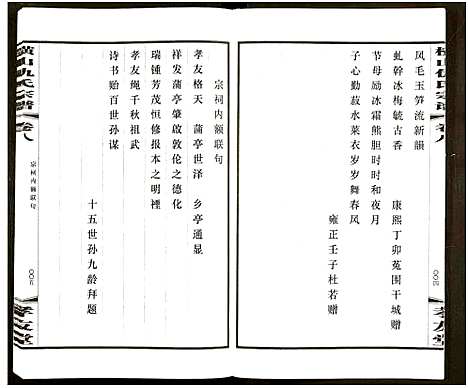 橫山仇氏宗譜
卷八
〇〇四
孝友堂
風毛玉笋流新韻
虬幹冰梅毓古香
康熙丁卯菟囲干城贈
节母励冰霜熊胆时时和夜月
子心勤菽水菜衣岁岁舞春风
雍正壬子杜若贈
宗祠内额联句
孝友格天
蒲亭世泽
乡亭通显
祥发蒲亭肇啟敦伦之德化
瑞锺芳茂恒修报本之明禋
孝友绳千秋祖武
诗书贻百世孙谋
十五世孙九龄拜题
橫山仇氏宗譜
卷八
宗祠内额联句
〇〇五
孝友堂